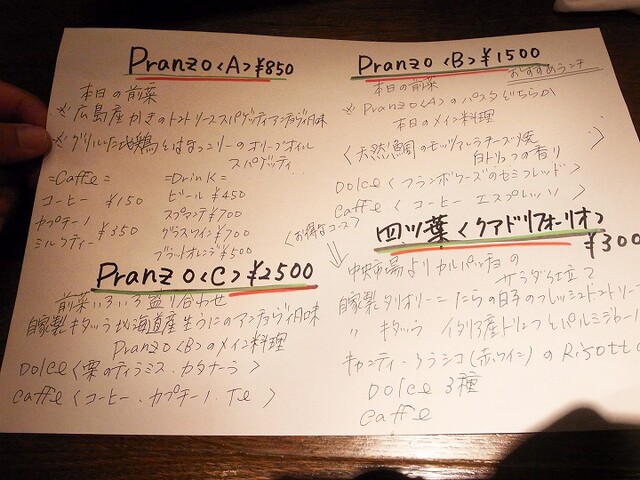 Pranzo〈A〉¥850
本日の前菜
※広島産かきのトマトソーススパゲッティアンチョヴィ風味
※グリルした地鶏とほまっこリーのオリーブオイル
スパゲッティ
=Caffe=
コーヒー ¥150
カプチーノ
ミルクティー ¥350
=Drink=
ビール ¥450
スプマンテ ¥700
グラスワイン ¥700
ブラッドオレンジ ¥500
Pranzo〈B〉¥1500
おすすめランチ
本日の前菜
※Pranzo〈A〉のパスタどちらか
本日のメイン料理
〈天然鯛のモッツァレラチーズ焼
白トリュフの香り〉
Dolce〈フランボワーズのセミフレッド〉
Caffe〈コーヒー エスプレッソ〉
Pranzo〈C〉¥2500
前菜いろいろ盛り合わせ
自家製キタッラ北海道産生うにのアンチョヴィ風味
Pranzo〈B〉のメイン料理
Dolce〈栗のティラミス・カタナーラ〉
Caffe〈コーヒー、カプチーノ、Te〉
〈お得なコース〉
四ツ葉〈クアドリフォーリオ〉
¥300
中央市場よりカルパッチョの
サラダ仕立て
自家製タリオリーニたらの白子のフレッシュトマトソー
〃 キタッラ イタリア産トリュフとパルミジャーノ
キャンティークラシコ(赤ワイン)のRisotto
Dolce 3種
Caffe